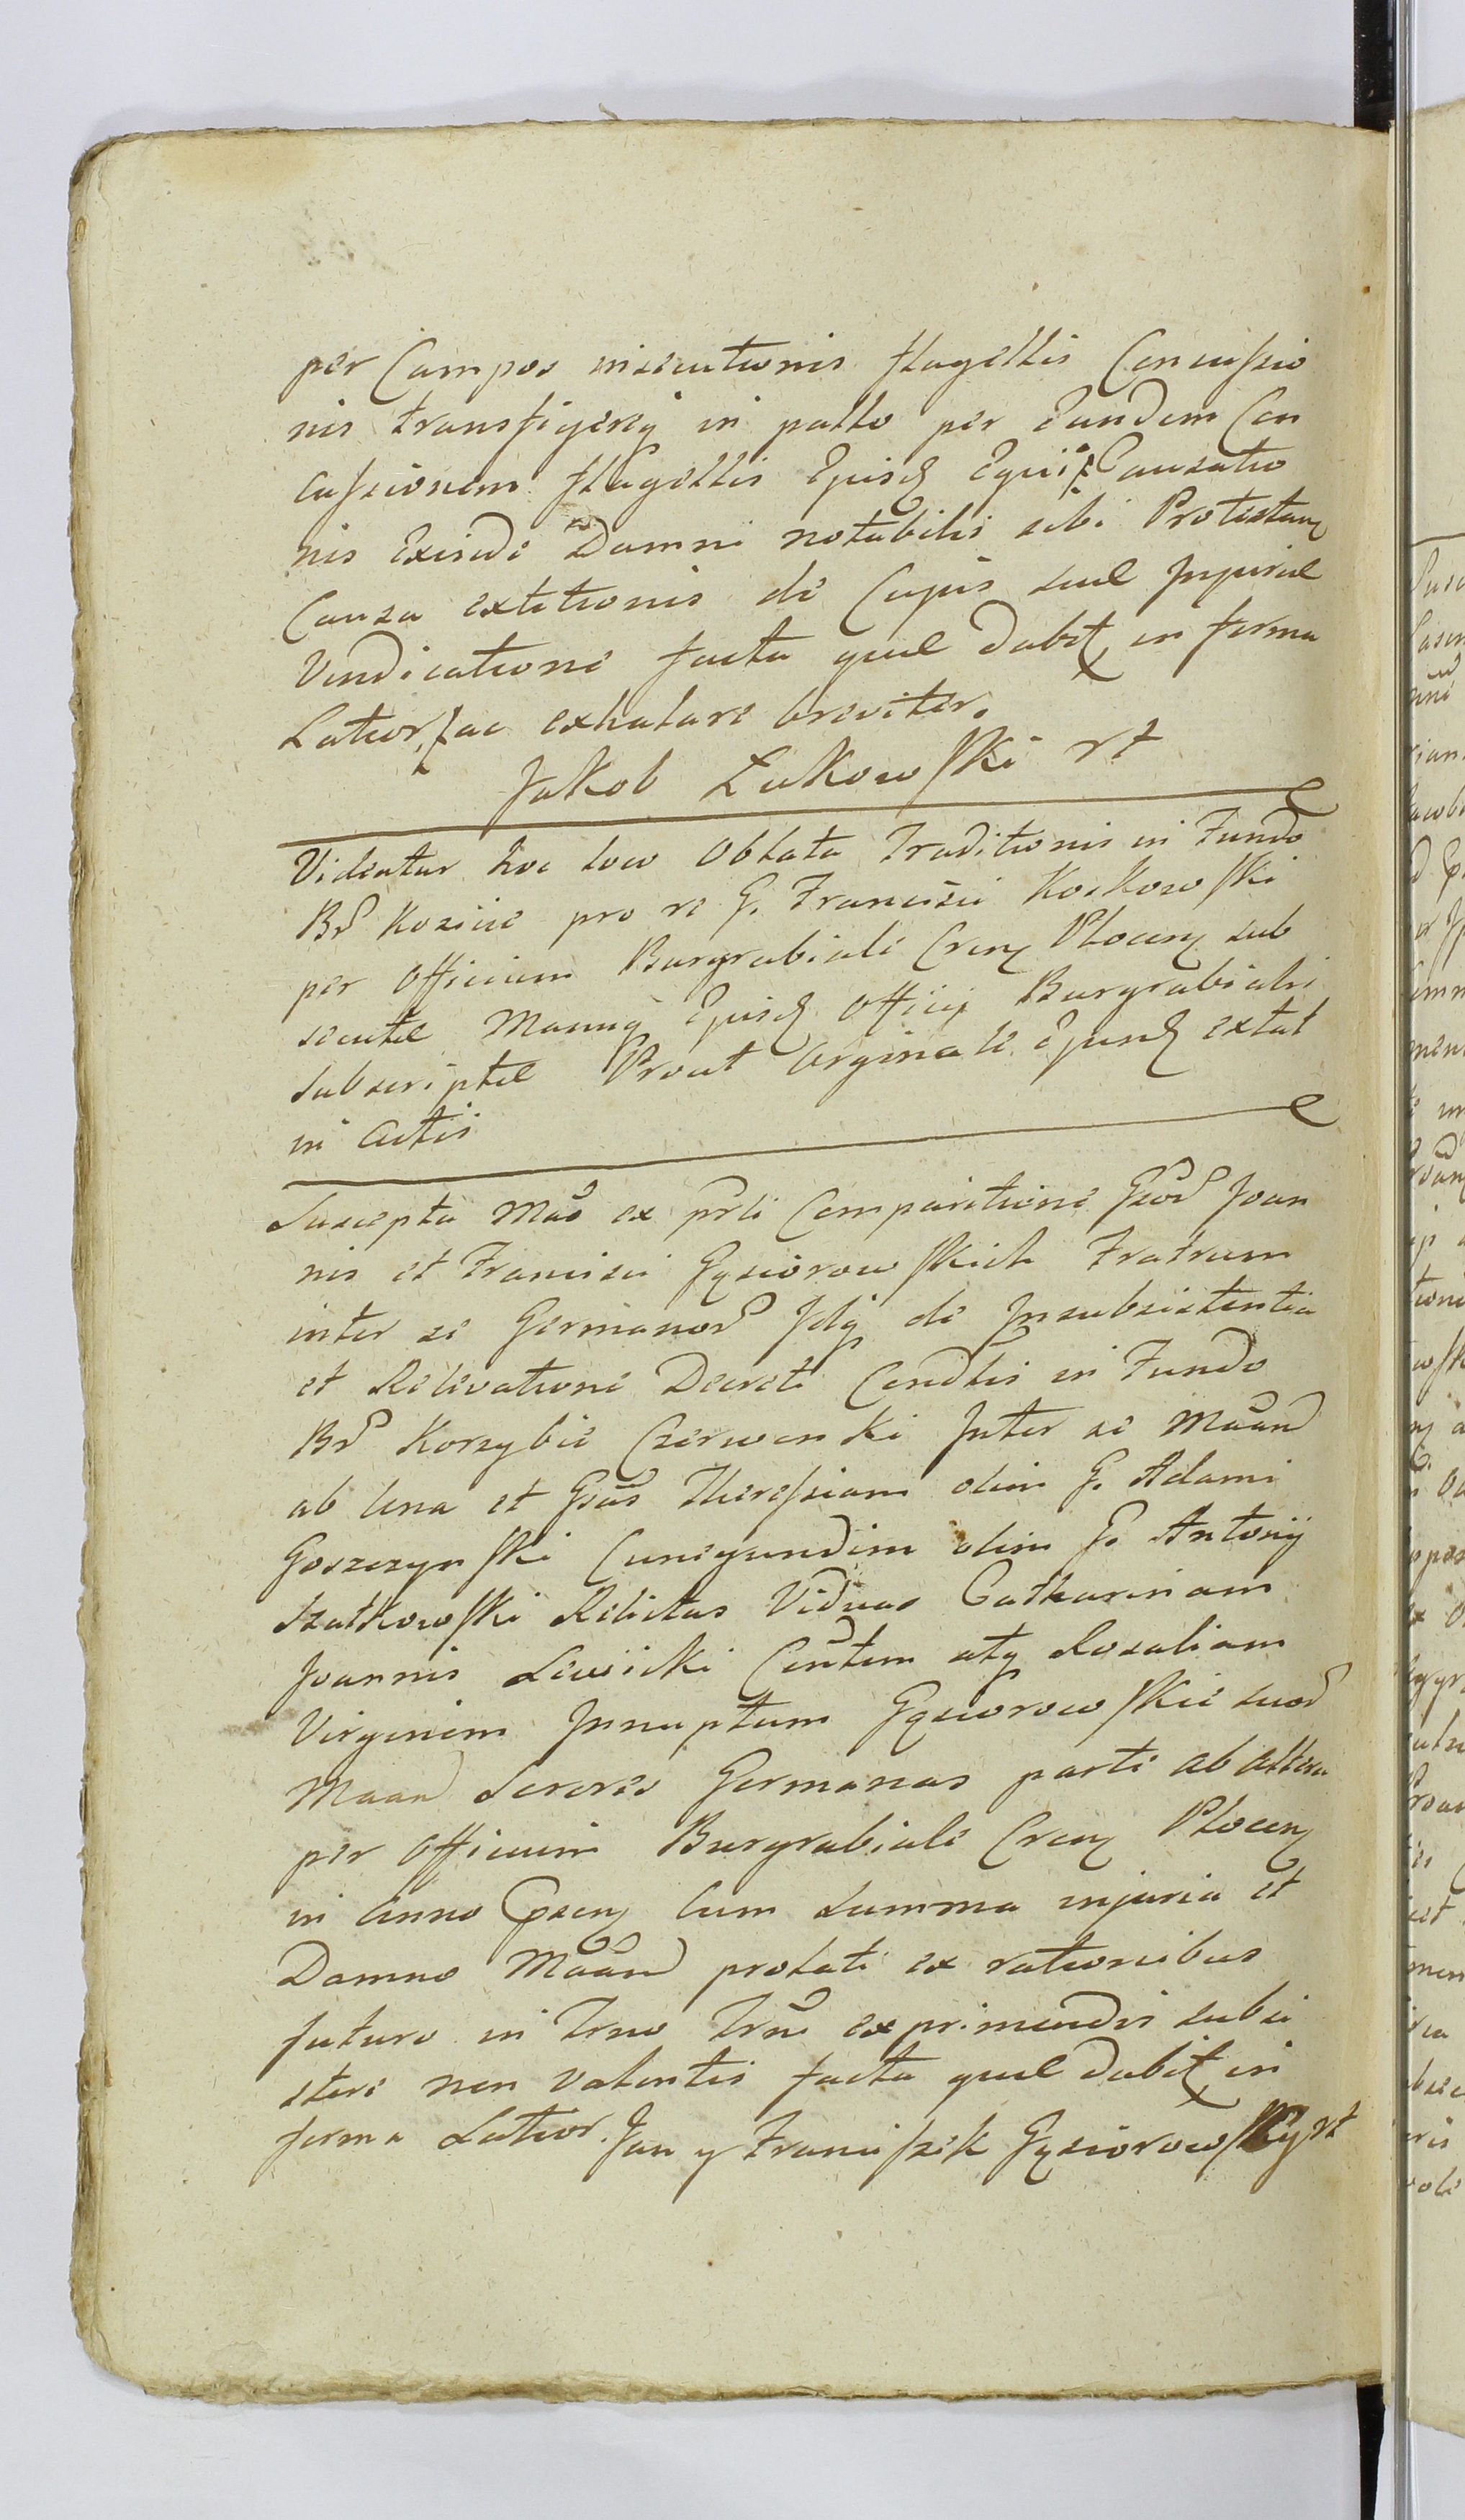 per Campos insecutionis flagellis Concussio
nis transfigereq in patlo per Eundem Con
cussionem flagellis Ejusd Equi Causatio
nis Exinde Damni notabilis sibi Protestanq
Causa extitionis de Cujus suae Injuriae
Vindicatione facta quae dabit in forma
Latiori ac exhalare breviter.
Jakob Łukowski rt
Videatur hoc loco Oblata Traditionis in Fundo
Br Koziie pro re G. Francisci Koskowski
per Officium Burgrabiale Cren Plocen sub
secutae Manuq Ejusd Officij Burgrabialis
subscriptae Prout Orginale Ejusd extat
in Actis
Suscepta Mao ex prli Comparitione Gsor Joan
nis et Francisci Gąsiorowskich Fratrum
inter se Germanor Jdq de Insubsistentia
et Relevatione Decreti Condlis in Fundo
Br Korzybie Czerwenki Inter se Maand
ab una et Gsas Theressiam olim G. Adami
Goszczynski Cunegundim olim G. Antonij
Szatkowski Relictas Viduas Catharinam
Joannis Lewicki Contem atq Rosaliam
Virginem Innuptam Gąsiorowskie suor
Maand Sorores Germanas parte ab altera
per Officium Burgrabiale Cren Plocen
in Anno Prsen Cum summa injuria et
Damno Maand prolati ex rationibus
futuro in Trno Trni exprimendis subsi
stere non Valentis facta quae dabit in
forma Latior. Jan y Franciszek Gąsiorowsky rt